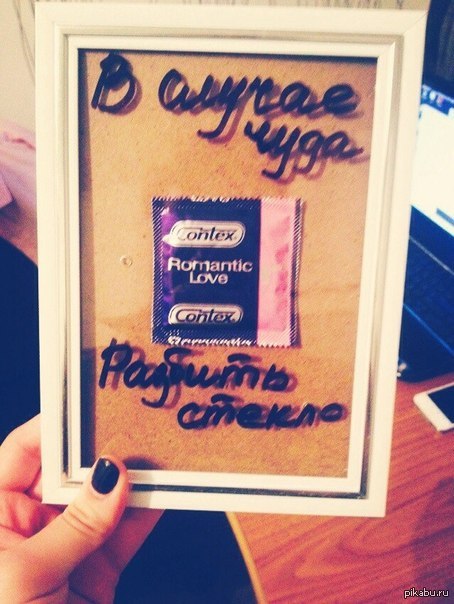 В случае
чуда
Contex
Romantic
Love
Contex
Romantic
Разбить
стекло
pikabu.ru